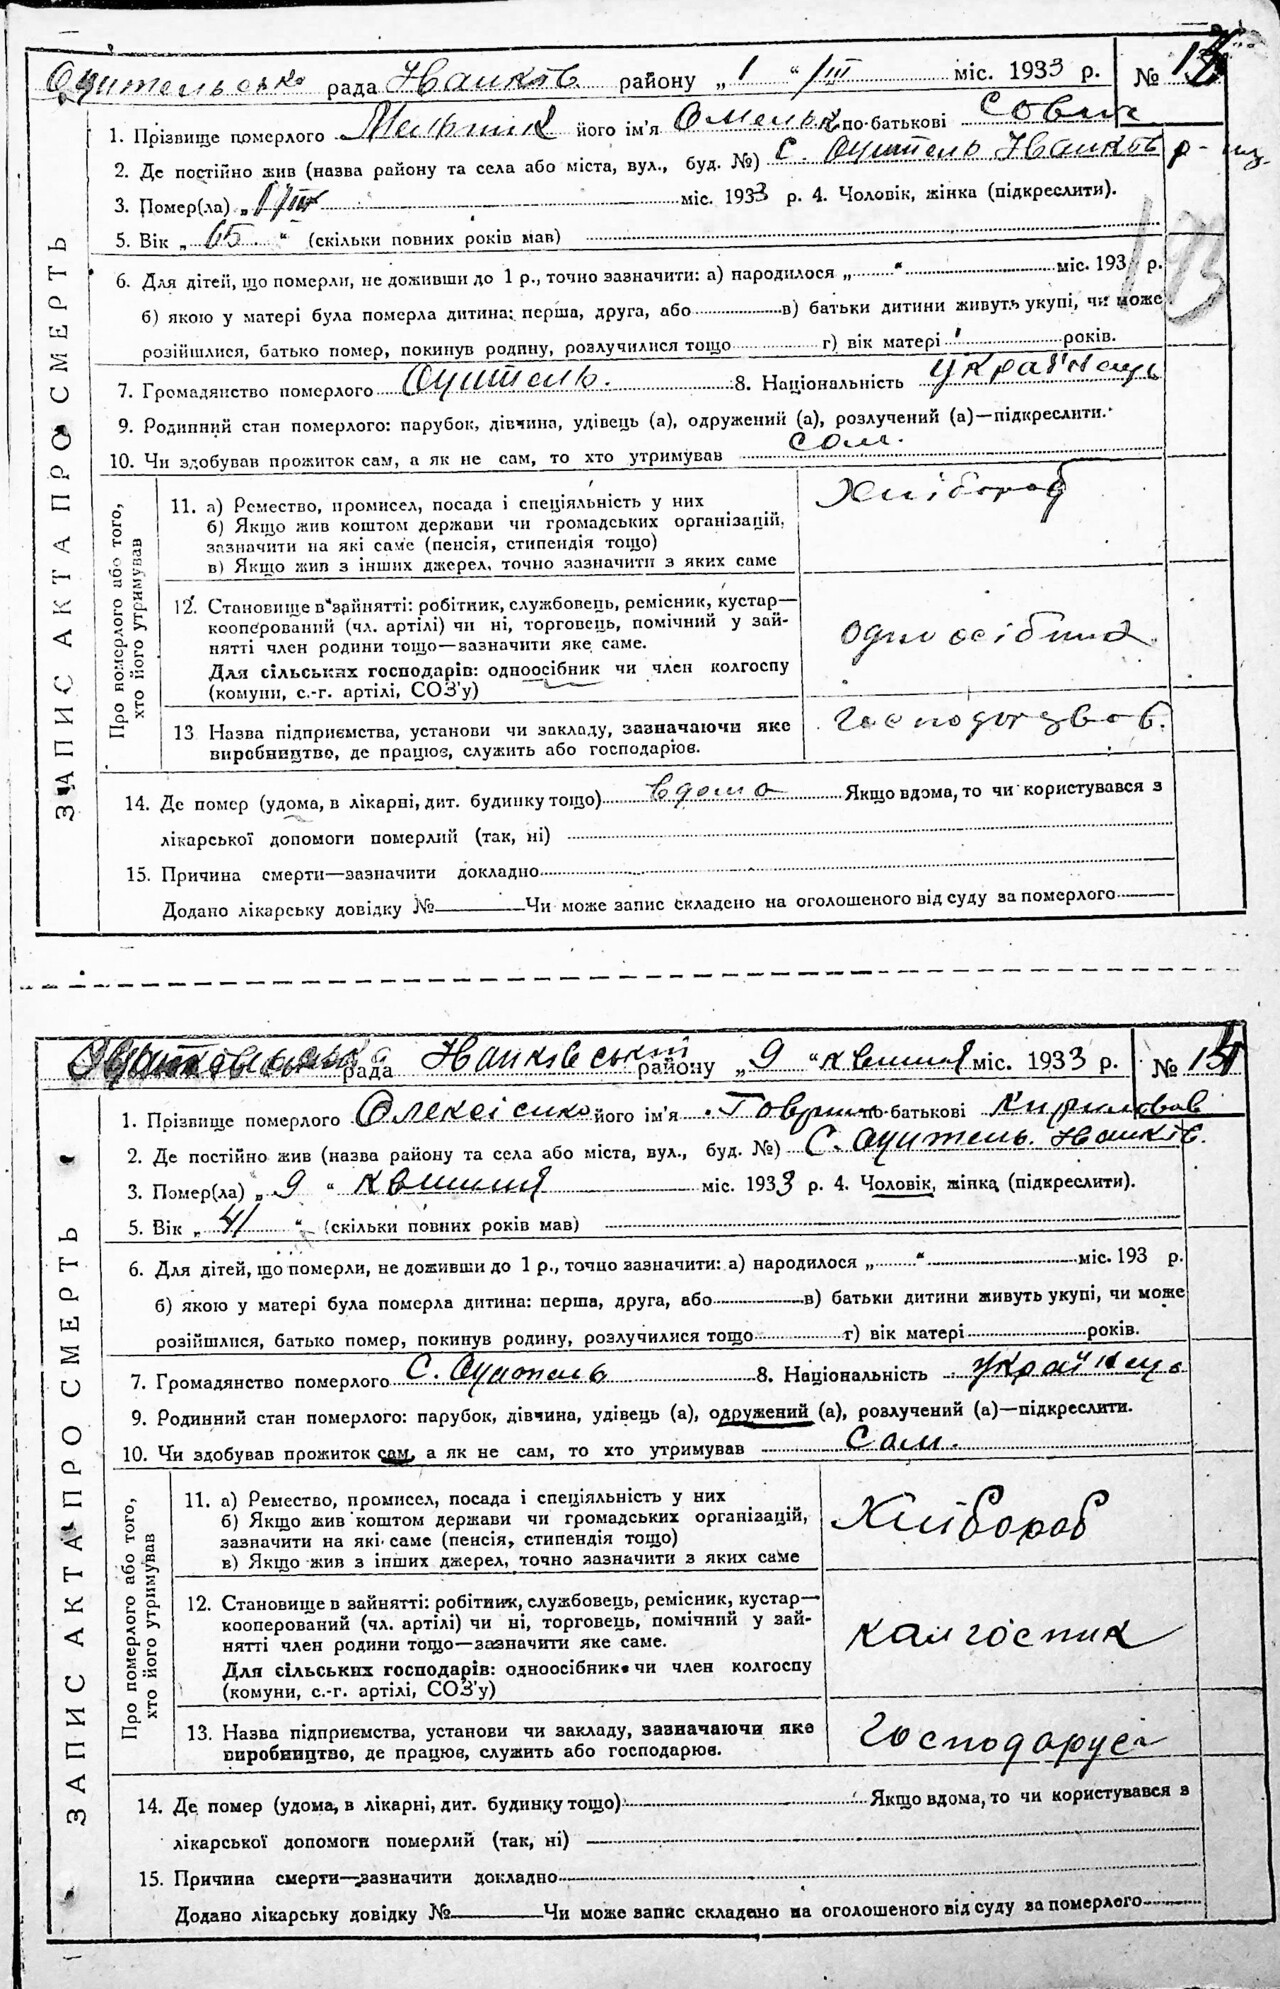 рада району „ 1 “ III міс. 1933 р. №
1. Прізвище померлого Мельник його ім'я Омелько по-батькові
2. Де постійно жив (назва району та села або міста, вул., буд. №) с.
3. Помер(ла) „ 1/III міс. 1933 р. 4. Чоловік, жінка (підкреслити).
5. Вік „ 65 “ (скільки повних років мав)
6. Для дітей, що померли, не доживши до 1 р., точно зазначити: а) народилося „ “ міс. 193 р.
б) якою у матері була померла дитина: перша, друга, або в) батьки дитини живуть укупі, чи може
розійшлися, батько помер, покинув родину, розлучилися тощо г) вік матері років.
7. Громадянство померлого 8. Національність Українець
9. Родинний стан померлого: парубок, дівчина, удівець (а), одружений (а), розлучений (а)—підкреслити.
10. Чи здобував прожиток сам, а як не сам, то хто утримував сам.
ЗАПИС АКТА ПРО СМЕРТЬ
Про померлого або того,
хто його утримував
11. а) Ремество, промисел, посада і спеціяльність у них Хлібороб
б) Якщо жив коштом держави чи громадських організацій,
зазначити на які саме (пенсія, стипендія тощо)
в) Якщо жив з інших джерел, точно зазначити з яких саме
12. Становище в зайнятті: робітник, службовець, ремісник, кустар—
кооперований (чл. артілі) чи ні, торговець, помічний у зай-
нятті член родини тощо—зазначити яке саме.
Для сільських господарів: одноосібник чи член колгоспу
(комуни, с.-г. артілі, СОЗ'у)
13 Назва підприємства, установи чи закладу, зазначаючи яке
виробництво, де працює, служить або господарює.
14. Де помер (удома, в лікарні, дит. будинку тощо) вдома Якщо вдома, то чи користувався з
лікарської допомоги померлий (так, ні)
15. Причина смерти—зазначити докладно
Додано лікарську довідку № Чи може запис складено на оголошеного від суду за померлого
рада району „ 9 “ квітня міс. 1933 р. №
1. Прізвище померлого його ім'я по-батькові
2. Де постійно жив (назва району та села або міста, вул., буд. №) С.
3. Помер(ла) „ 9 “ квітня міс. 1933 р. 4. Чоловік, жінка (підкреслити).
5. Вік „ 41 “ (скільки повних років мав)
6. Для дітей, що померли, не доживши до 1 р., точно зазначити: а) народилося „ “ міс. 193 р.
б) якою у матері була померла дитина: перша, друга, або в) батьки дитини живуть укупі, чи може
розійшлися, батько помер, покинув родину, розлучилися тощо г) вік матері років.
7. Громадянство померлого С. 8. Національність Українець
9. Родинний стан померлого: парубок, дівчина, удівець (а), одружений (а), розлучений (а)—підкреслити.
10. Чи здобував прожиток сам, а як не сам, то хто утримував сам.
ЗАПИС АКТА ПРО СМЕРТЬ
Про померлого або того,
хто його утримував
11. а) Ремество, промисел, посада і спеціяльність у них
б) Якщо жив коштом держави чи громадських організацій, Хлібороб
зазначити на які саме (пенсія, стипендія тощо)
в) Якщо жив з інших джерел, точно зазначити з яких саме
12. Становище в зайнятті: робітник, службовець, ремісник, кустар—
кооперований (чл. артілі) чи ні, торговець, помічний у зай-
нятті член родини тощо—зазначити яке саме.
Для сільських господарів: одноосібник чи член колгоспу
(комуни, с.-г. артілі, СОЗ'у)
13. Назва підприємства, установи чи закладу, зазначаючи яке
виробництво, де працює, служить або господарює.
14. Де помер (удома, в лікарні, дит. будинку тощо) Якщо вдома, то чи користувався з
лікарської допомоги померлий (так, ні)
15. Причина смерти—зазначити докладно
Додано лікарську довідку № Чи може запис складено на оголошеного від суду за померлого